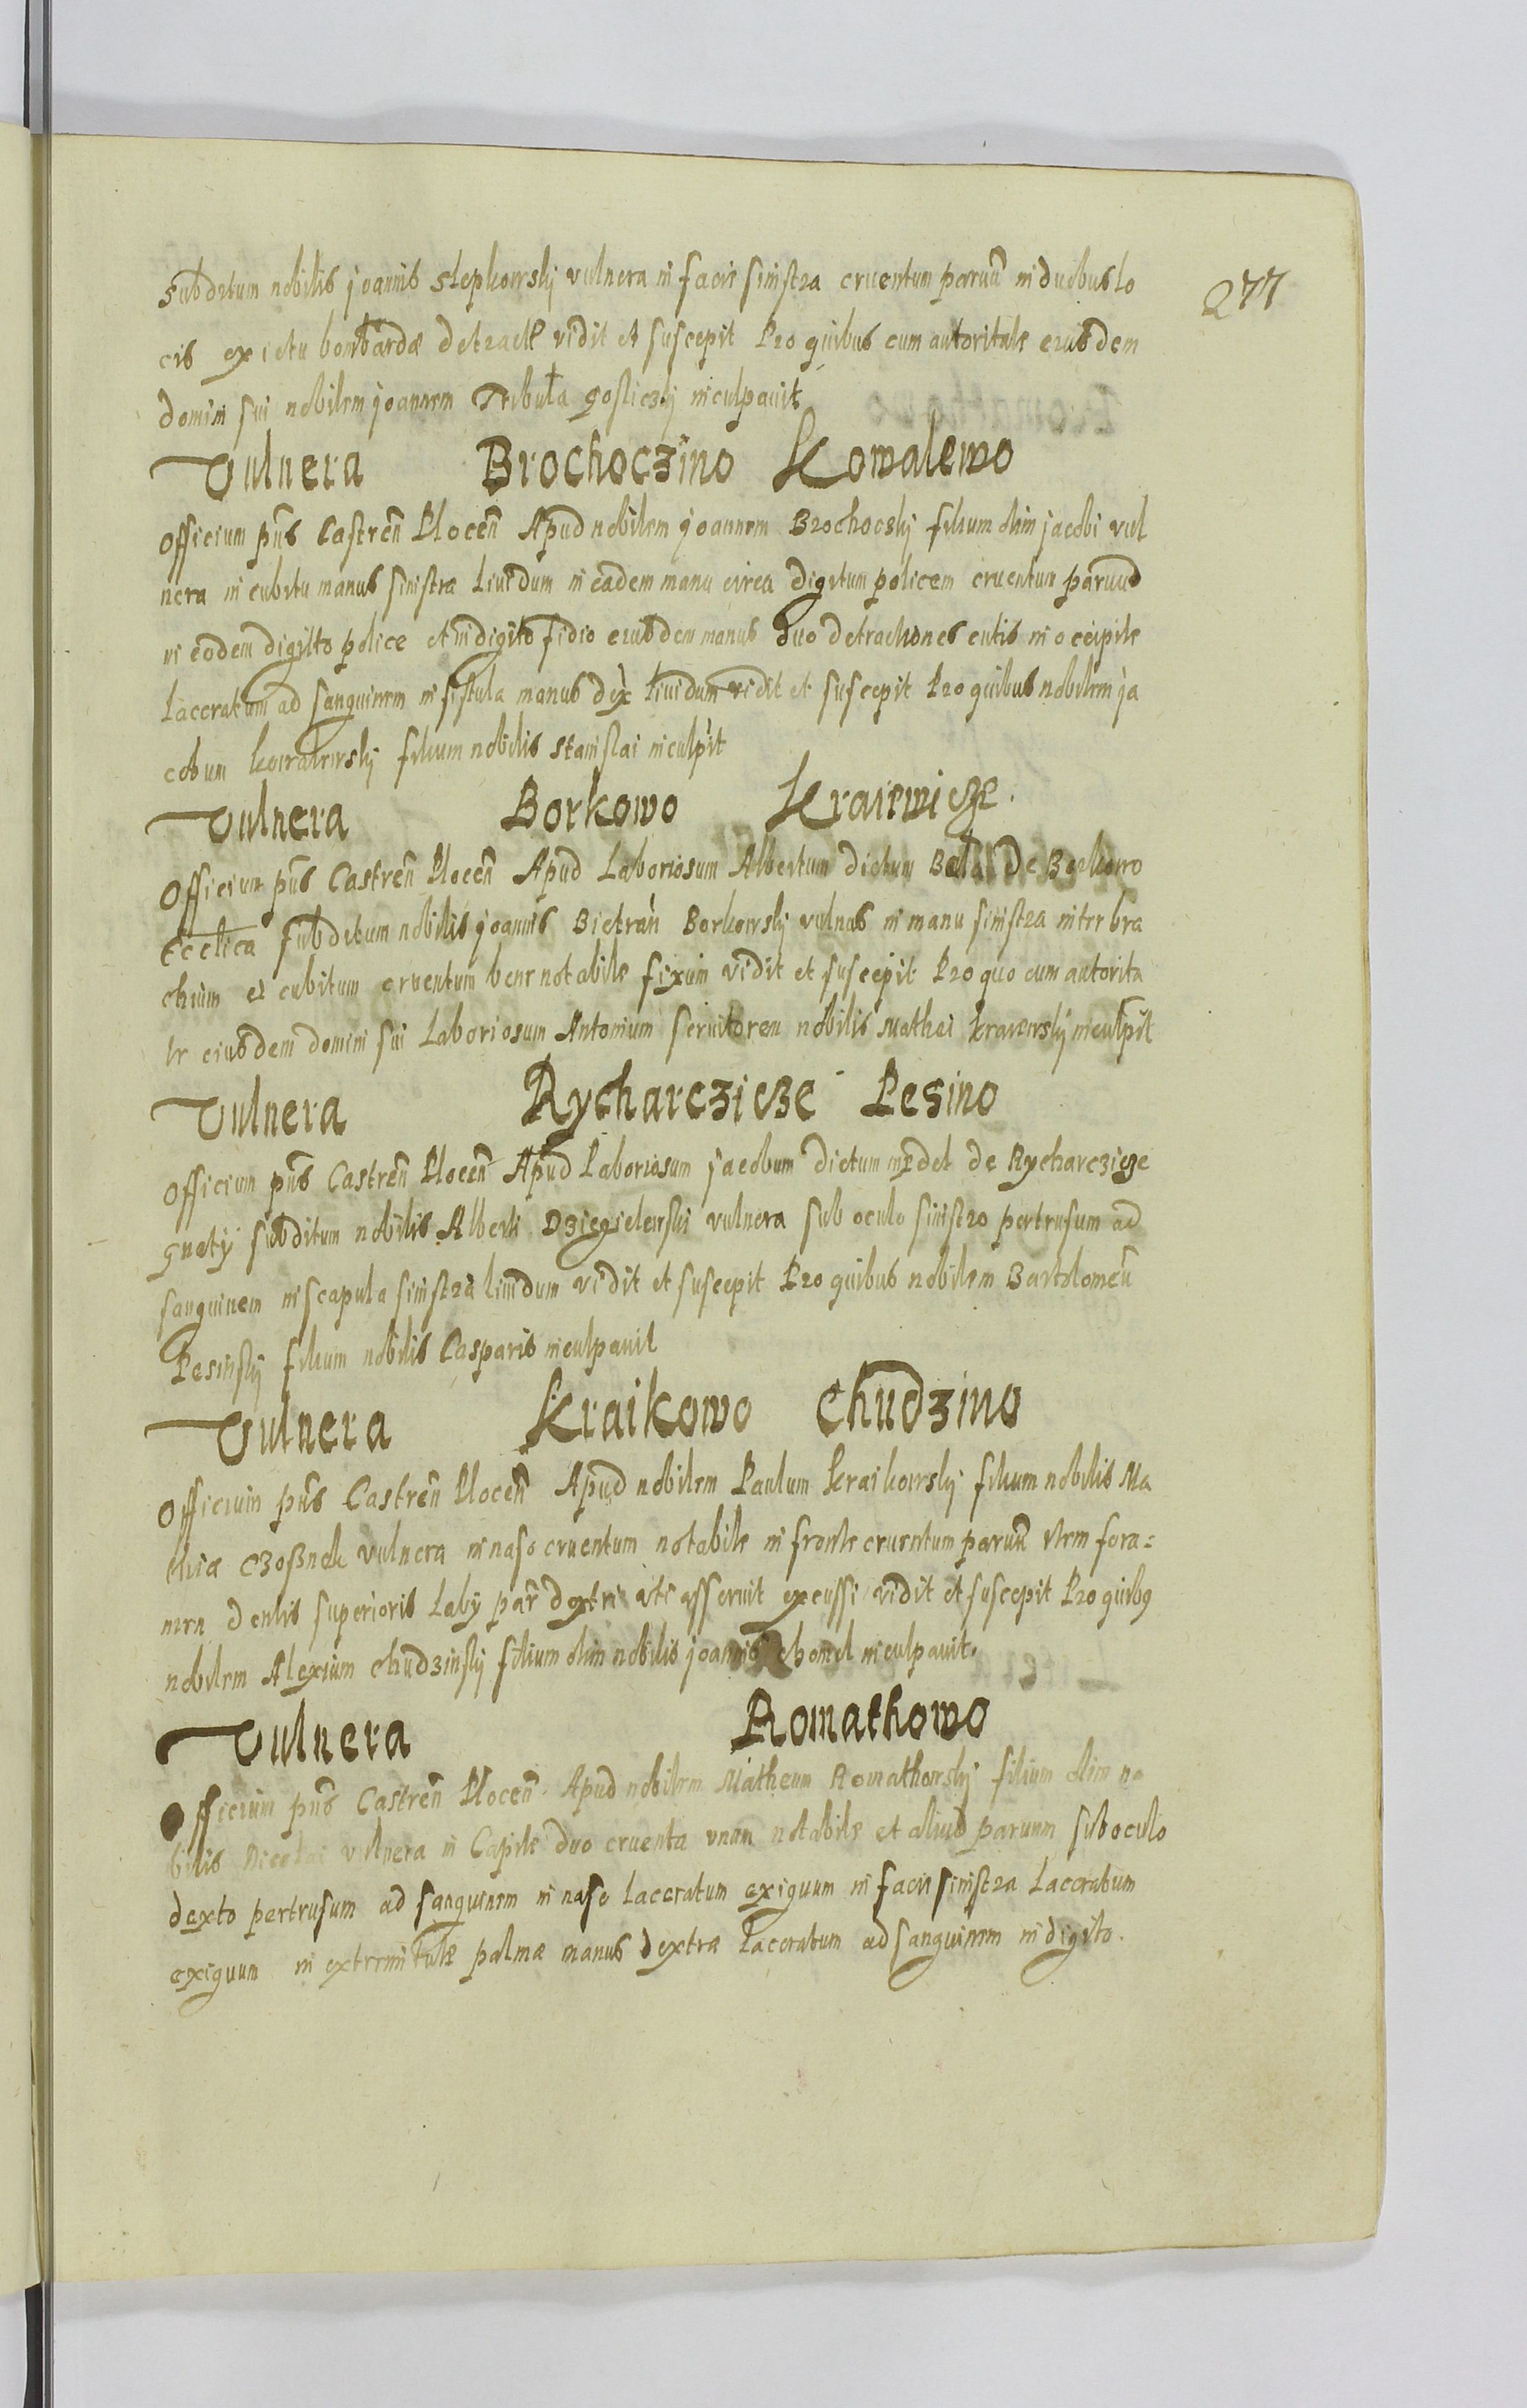 277
subditum nobilis joannis Slepkowskij vulnera in facie sinistra cruentum paruū in duobus lo
cis ex ictu bombardæ detracte vidit et suscepit Pro quibus cum autoritate eiusdem
domini sui nobilem joannem Tribuła Gosliczkij inculpauit
Vulnera Brochoczino Kowalewo
Officium pn̄s Castren̄ Plocen̄ Apud nobilem joannem Brochocskij filium olim jacobi vul
nera in cubitu manus sinistræ Liuidum in eadem manu circa digitum policem cruentum paruum
in eodem digitto police et in digito eiusdem manus duo detractiones cutis in occipite
Laceratum ad sanguinem in fistula manus dex̄ Liuidum vidit et suscepit Pro quibus nobilem ja
cobum kowalewskij filium nobilis Stanislai inculp̄it
Vulnera Borkowo Kraiewicze.
Officium pn̄s Castren̄ Plocen̄ Apud Laboriosum Albertum dictum Bała De Borkowo
Ecclica subditum nobilis joannis Bietran Borkowskij vulnus in manu sinistra inter bra
chium et cubitum cruentum bene notabile fixum vidit et suscepit Pro quo cum autorita
te eiusdem domini sui Laboriosum Antonium seruitorem nobilis Mathei kraiewskij inculp̄it
Vulnera Rycharczicze Lesino
Officium pn̄s Castren̄ Plocen̄ Apud Laboriosum jacobum dictum de Rycharczicze
Gnaty subditum nobilis Alberti Dziegielewski vulnera sub oculo sinistro pertrusum ad
sanguinem in scapula sinistra liuidum vidit et suscepit Pro quibus nobilem Bartolomeū
Lesinskij filium nobilis Casparis inculpauit
Vulnera Kraikowo Chudzino
Officium pn̄s Castren̄ Plocen̄ Apud nobilem Paulum Kraikowskij filium nobilis Ma
thiæ Czoßnek vulnera in naso cruentum notabile in fronte cruentum paruū item fora=
men dentis superioris Labij par̄ dextri uti asseruit excussi vidit et suscepit Pro quibꝯ
nobilem Alexium chudzinskij filium olim nobilis joannis chomel inculpauit.
Vulnera Romathowo
Officium pn̄s Castren̄ Plocen̄ Apud nobilem Matheum Romathowskij filium olim no
bilis Nicolai vulnera in Capite duo cruenta vnum notabile et aliud paruum sub oculo
dexto pertrusum ad sanguinem in naso Laceratum exiguum in facie sinistra Laceratum
exiguum in extremitate palmæ manus dextræ Laceratum ad sanguinem in digito.